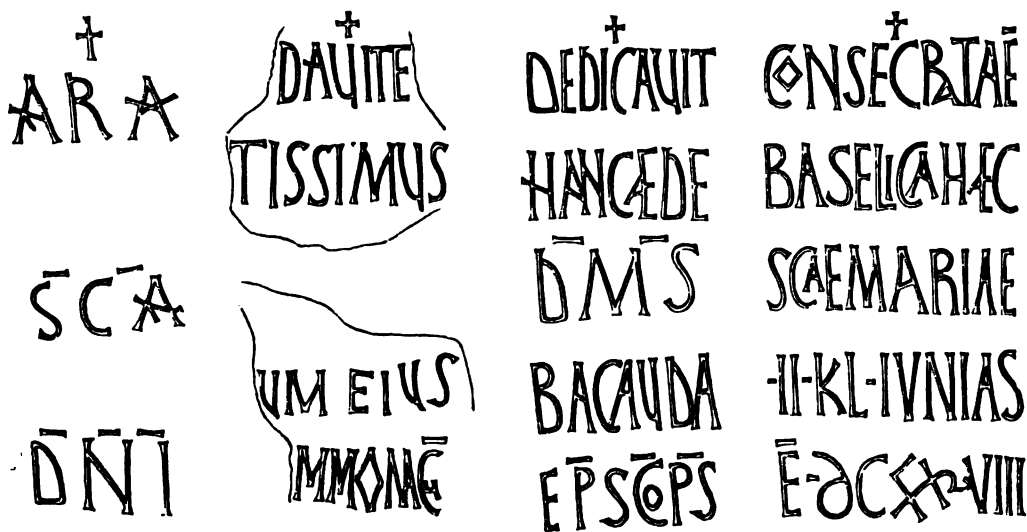 †
ARA
S̄C̄Ā
D̄N̄Ī
†
DAUITE
TISSIMUS
UM EIUS
MMONAC̄H
†
DEDICAUIT
HANCAEDE
D̄M̄S
BACAUDA
EP̄SC̄OP̄S
†
CONSECRATAĒ
BASELICAHAEC
SCAEMARIAE
·II·KL·IVNIAS
Ē·DCLXXXVIII